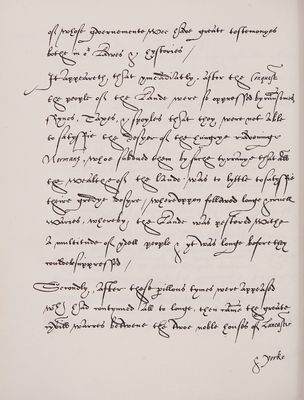 of whose Governemente wee have greate testemonyes
bothe in oʳ Lawes & hystories /
It appeareth, that ymediatly, after the Conquest
the people of the Lande were so oppressed by
Fynes, Taxes, & spoyles that they were not able
to satysfie the desyer of the hungrye raveninge
Normans, whoe subdued them by suche tyrranye that all
the wealthe of the lande was to lyttle to satysfie
theire gredye desyre, whereuppon followed longe & cruell
warres, whereby, the Lande was pestered withe
a multitude of ydell people & yt was longe before they
coulde suppressed /
Secondly, after these pillous tymes were appeased
wᶜʰ had contynued all to longe, then came the greate
cyvill warres betwene the twoe noble houses of Lancaster
& Yorke